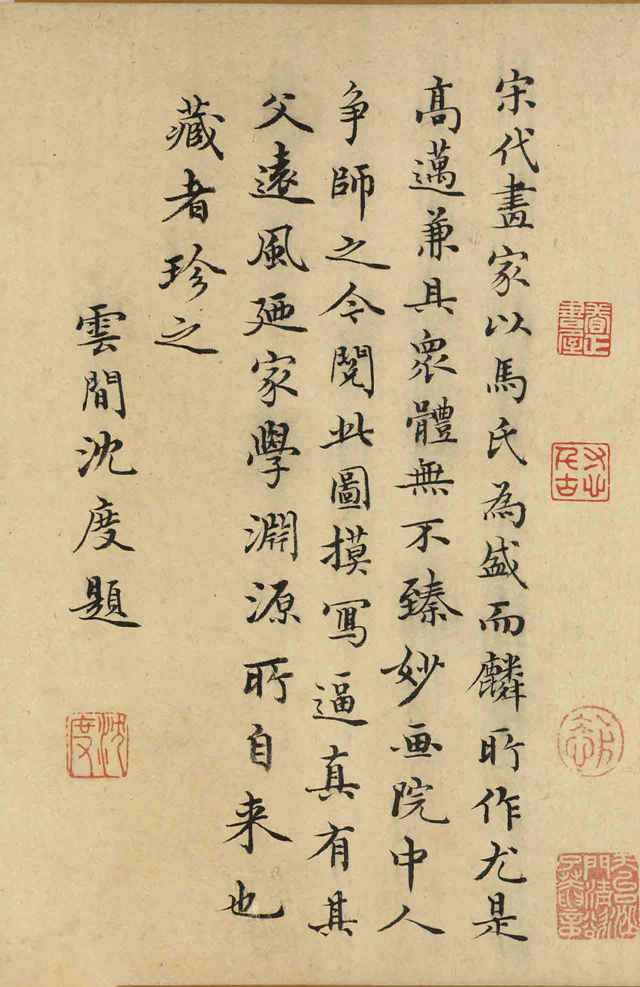 宋代畫家以馬氏為盛而麟所作尤是
高邁兼具衆體無不臻妙画院中人
争師之今閱此圖摸寫逼真有其
父遠風廼家學淵源所自来也
藏者珍之
雲間沈度題
沈度